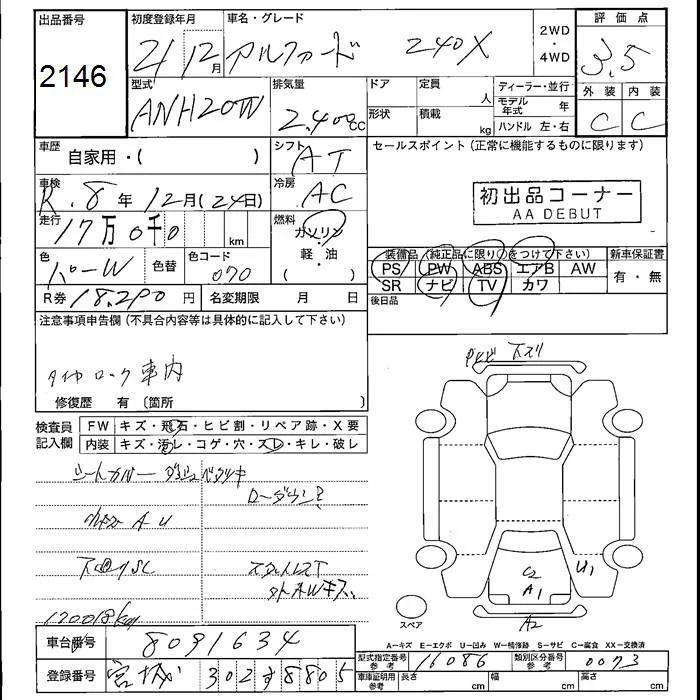 出品番号
2146
初度登録年月
21 12月
車名・グレード
アルファード 240X
2WD
・
4WD
評価点
3.5
外装 内装
C C
型式
ANH20W
排気量
2,400cc
ドア
形状
定員
人
積載
kg
ディーラー・並行
モデル年式 年
ハンドル 左・右
車歴
自家用・( )
シフト
AT
車検
R.8年 12月(24日)
冷房
AC
走行
17万0千0
km
燃料
ガソリン
軽・油
色
パールW
色替
色コード
070
R券 18,290円
名変期限 月 日
セールスポイント(正常に機能するものに限ります)
初出品コーナー
AA DEBUT
装備品(純正品に限り○をつけて下さい)
PS PW ABS エアB AW
SR ナビ TV カワ
新車保証書
有・無
後日品
注意事項申告欄(不具合内容等は具体的に記入して下さい)
タイヤロック車内
修復歴 有〔箇所 〕
検査員
記入欄
FW キズ・飛石・ヒビ割・リペア跡・X要
内装 キズ・汚レ・コゲ・穴・スレ・キレ・破レ
シートカバー
ベタツキ
ローダウン?
A-U
170018km
車台番号 8091634
登録番号 宮城 302 す 8805
C2
A1
U1
A2
スペア
A-キズ E-エクボ U-凹み W-補修跡 S-サビ C-腐食 XX-交換済
型式指定番号
参考
16086
類別区分番号
参考
0073
車庫証明用
参考
長さ cm
幅 cm
高さ cm